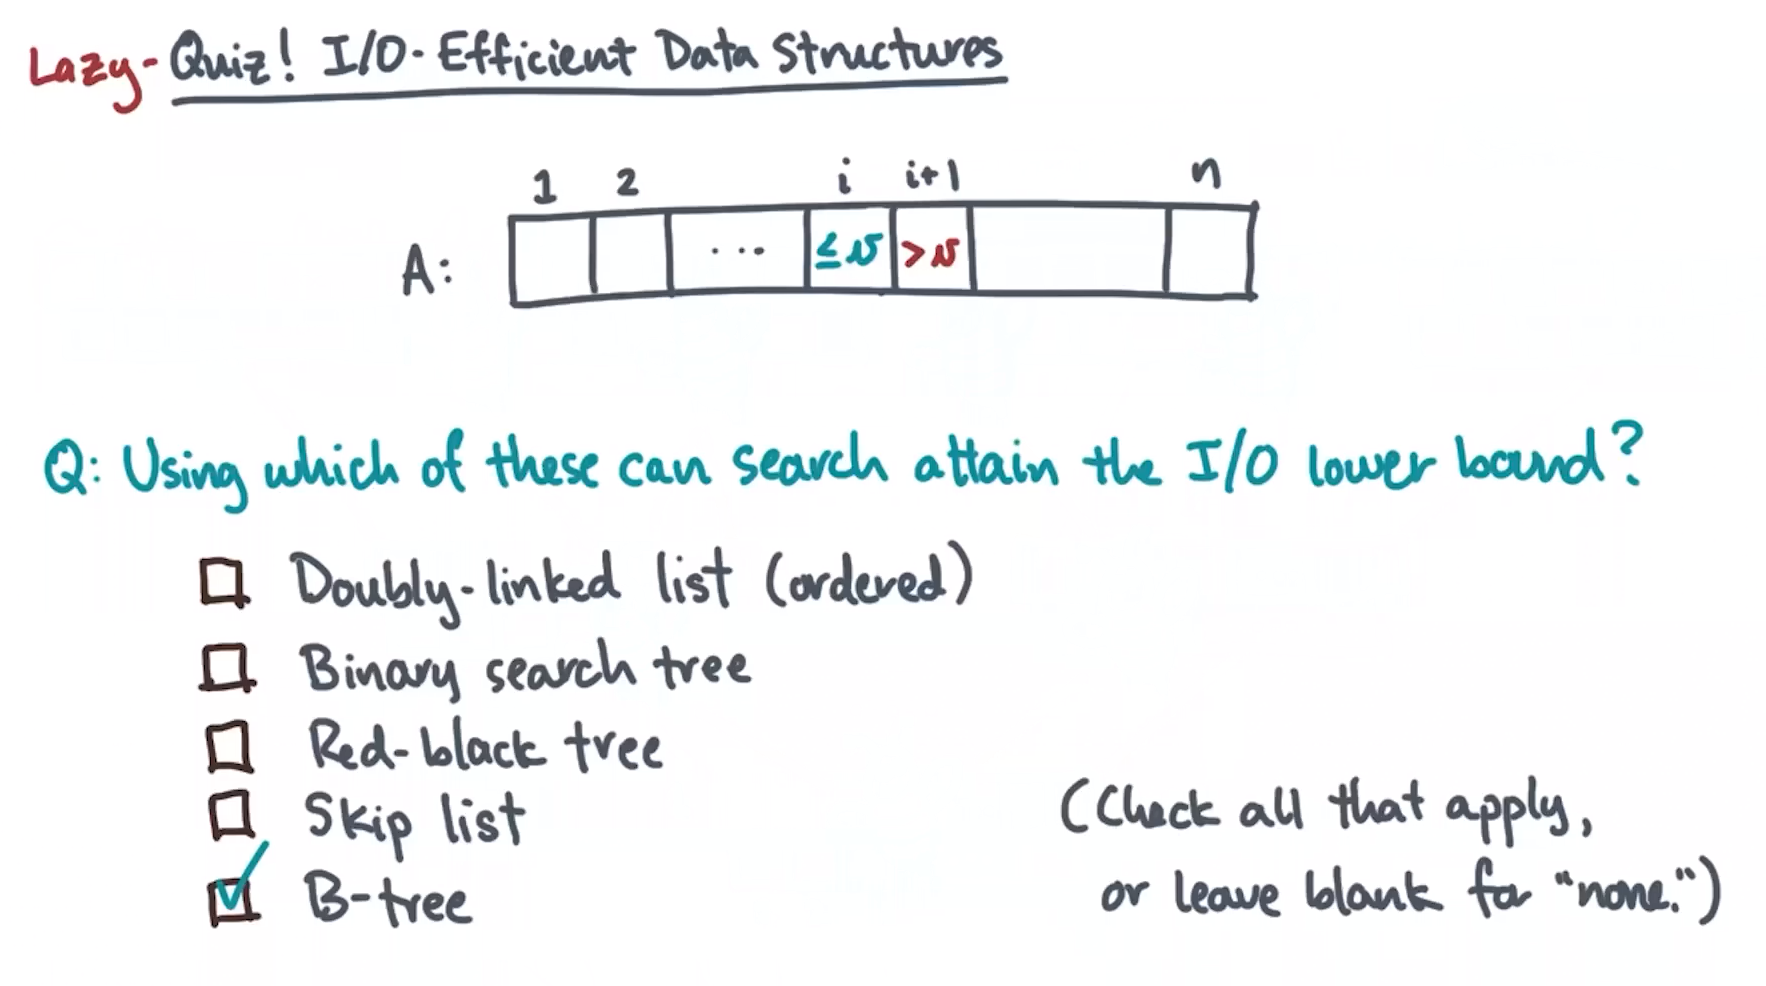 Lazy-Quiz! I/O-Efficient Data Structures
1 2 i i+1 n
A: ... ≤ v > v
Q: Using which of these can search attain the I/O lower bound?
Doubly-linked list (ordered)
Binary search tree
Red-black tree
Skip list
(Check all that apply,
B-tree
or leave blank for "none.")